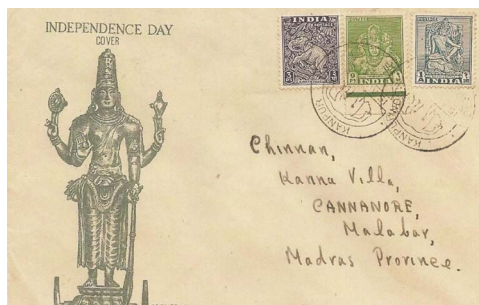 INDEPENDENCE DAY
COVER
INDIA
INDIA
INDIA
KANPUR
Chinnan,
Kanna Villa,
CANNANORE,
Malabar,
Madras Province.